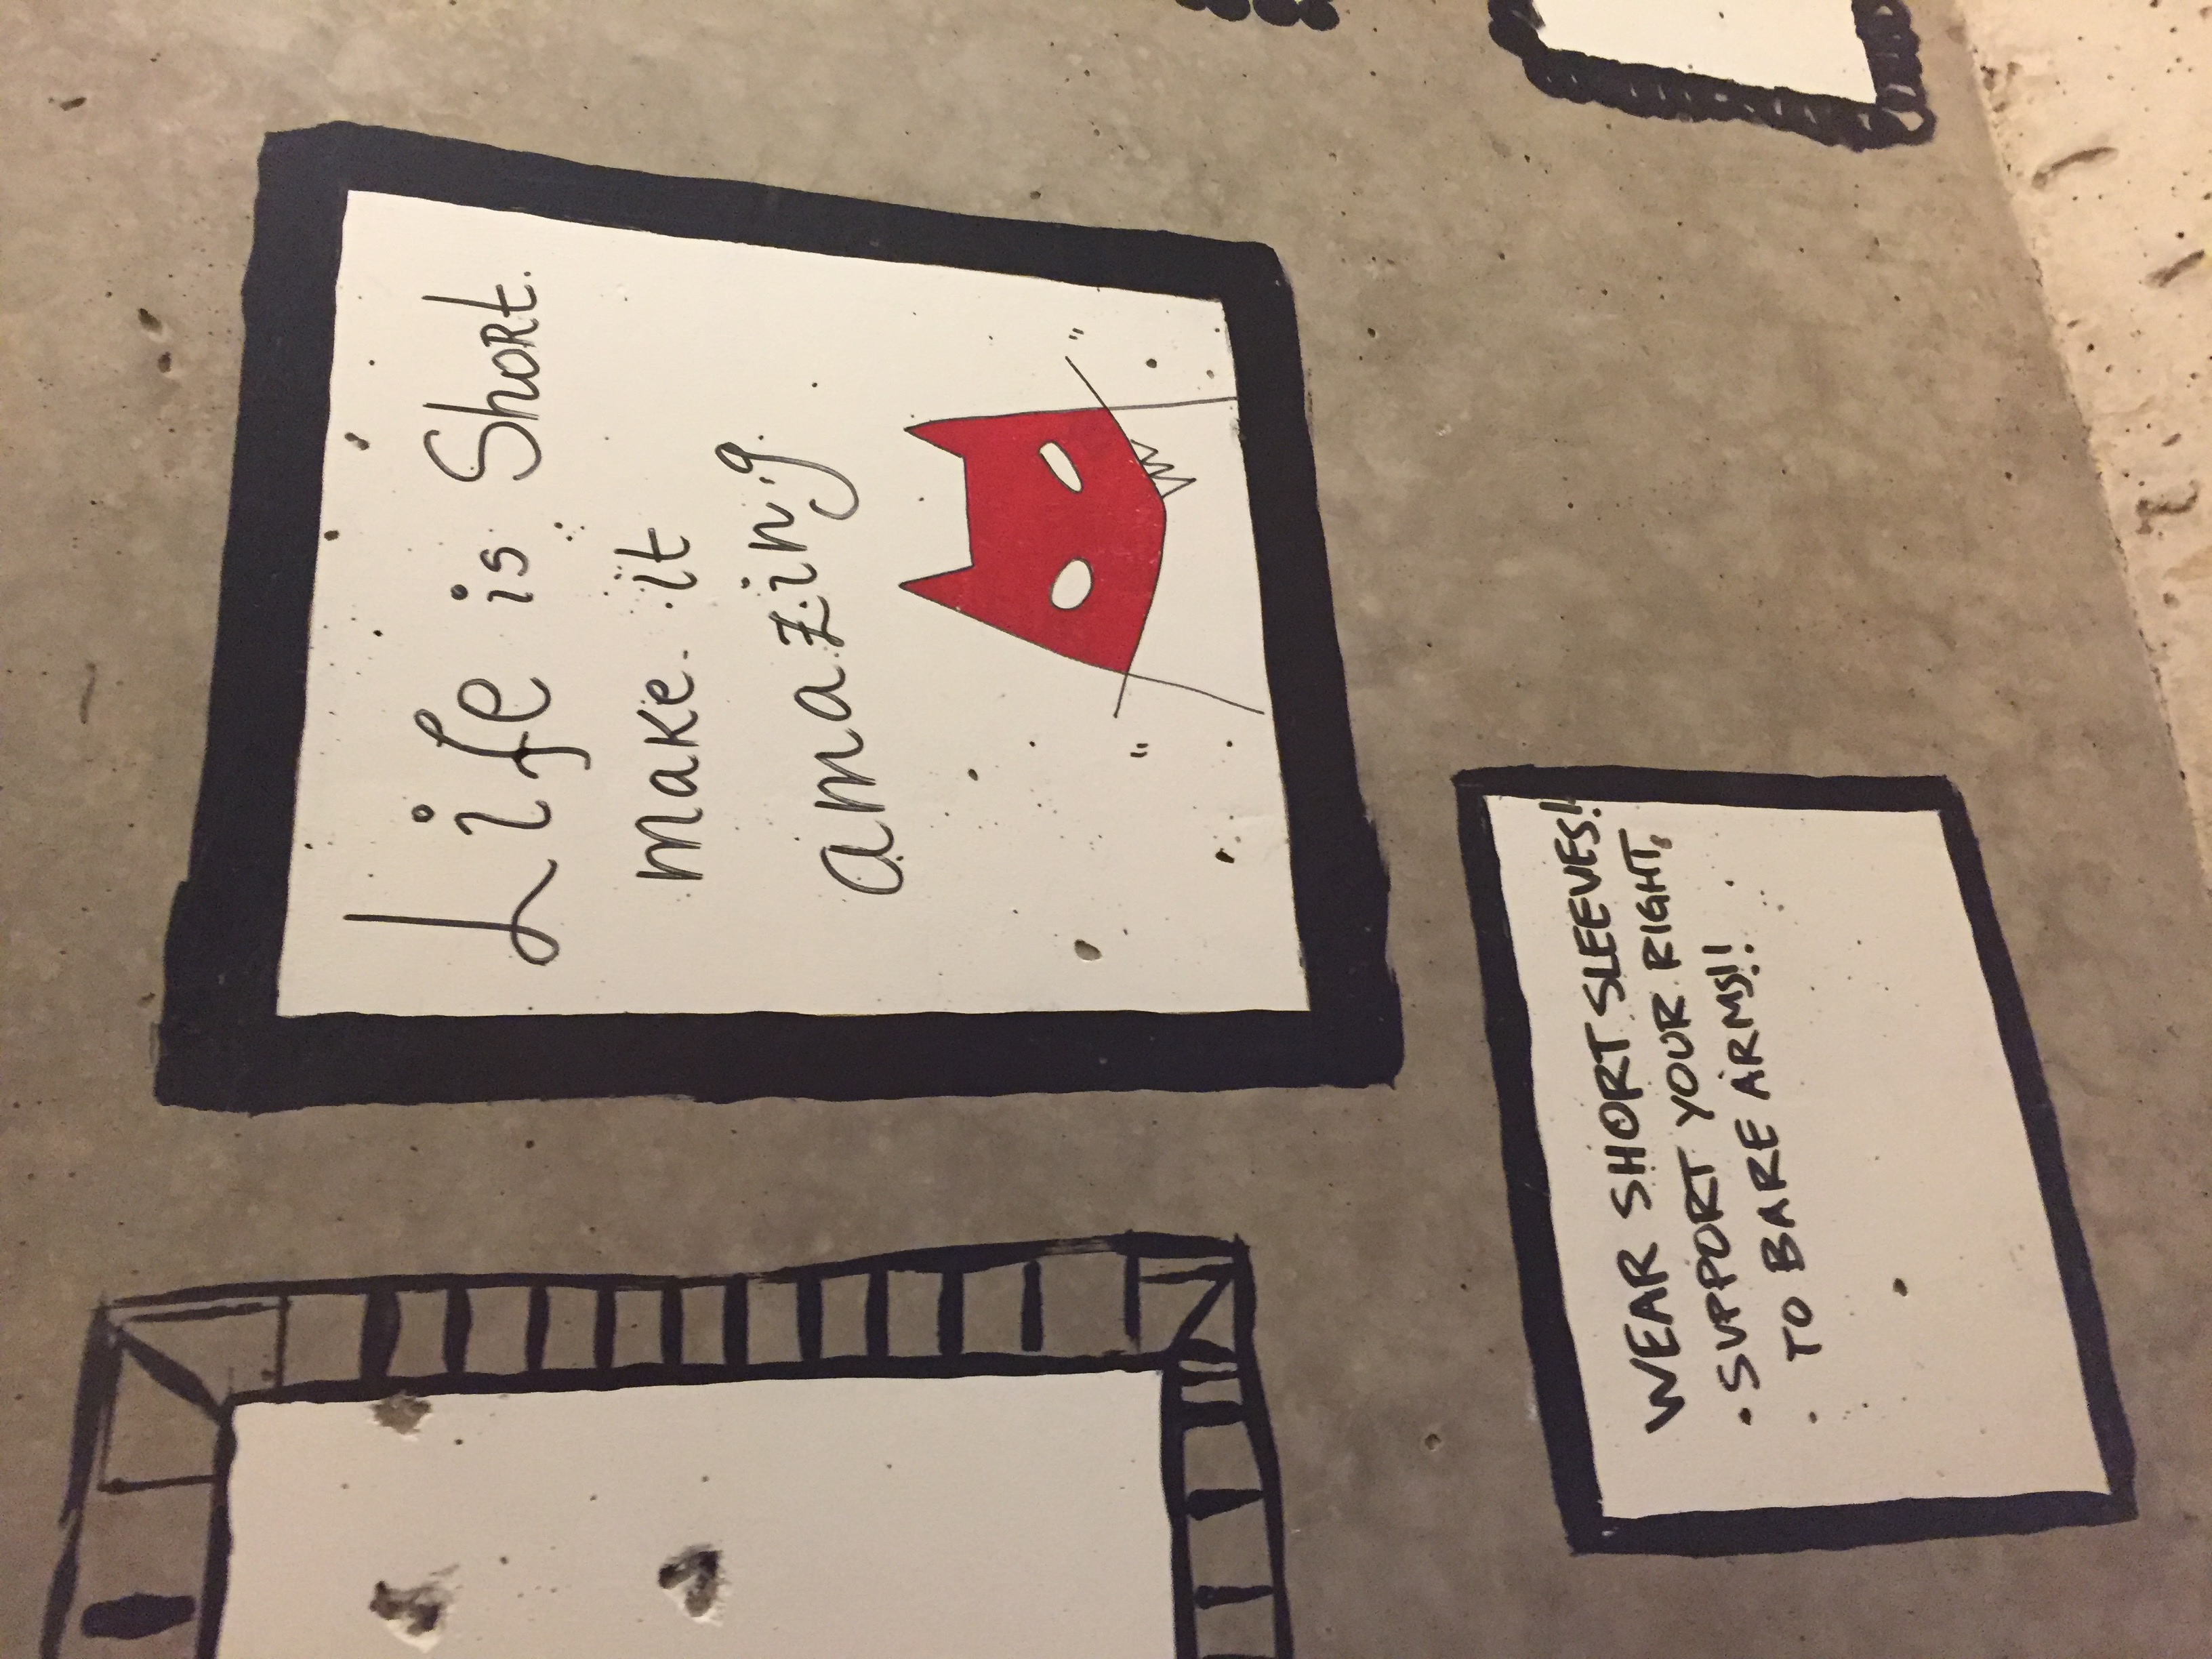 Life is Short.
make it
amazing.
WEAR SHORT SLEEVES!
SUPPORT YOUR RIGHT,
TO BARE ARMS!!